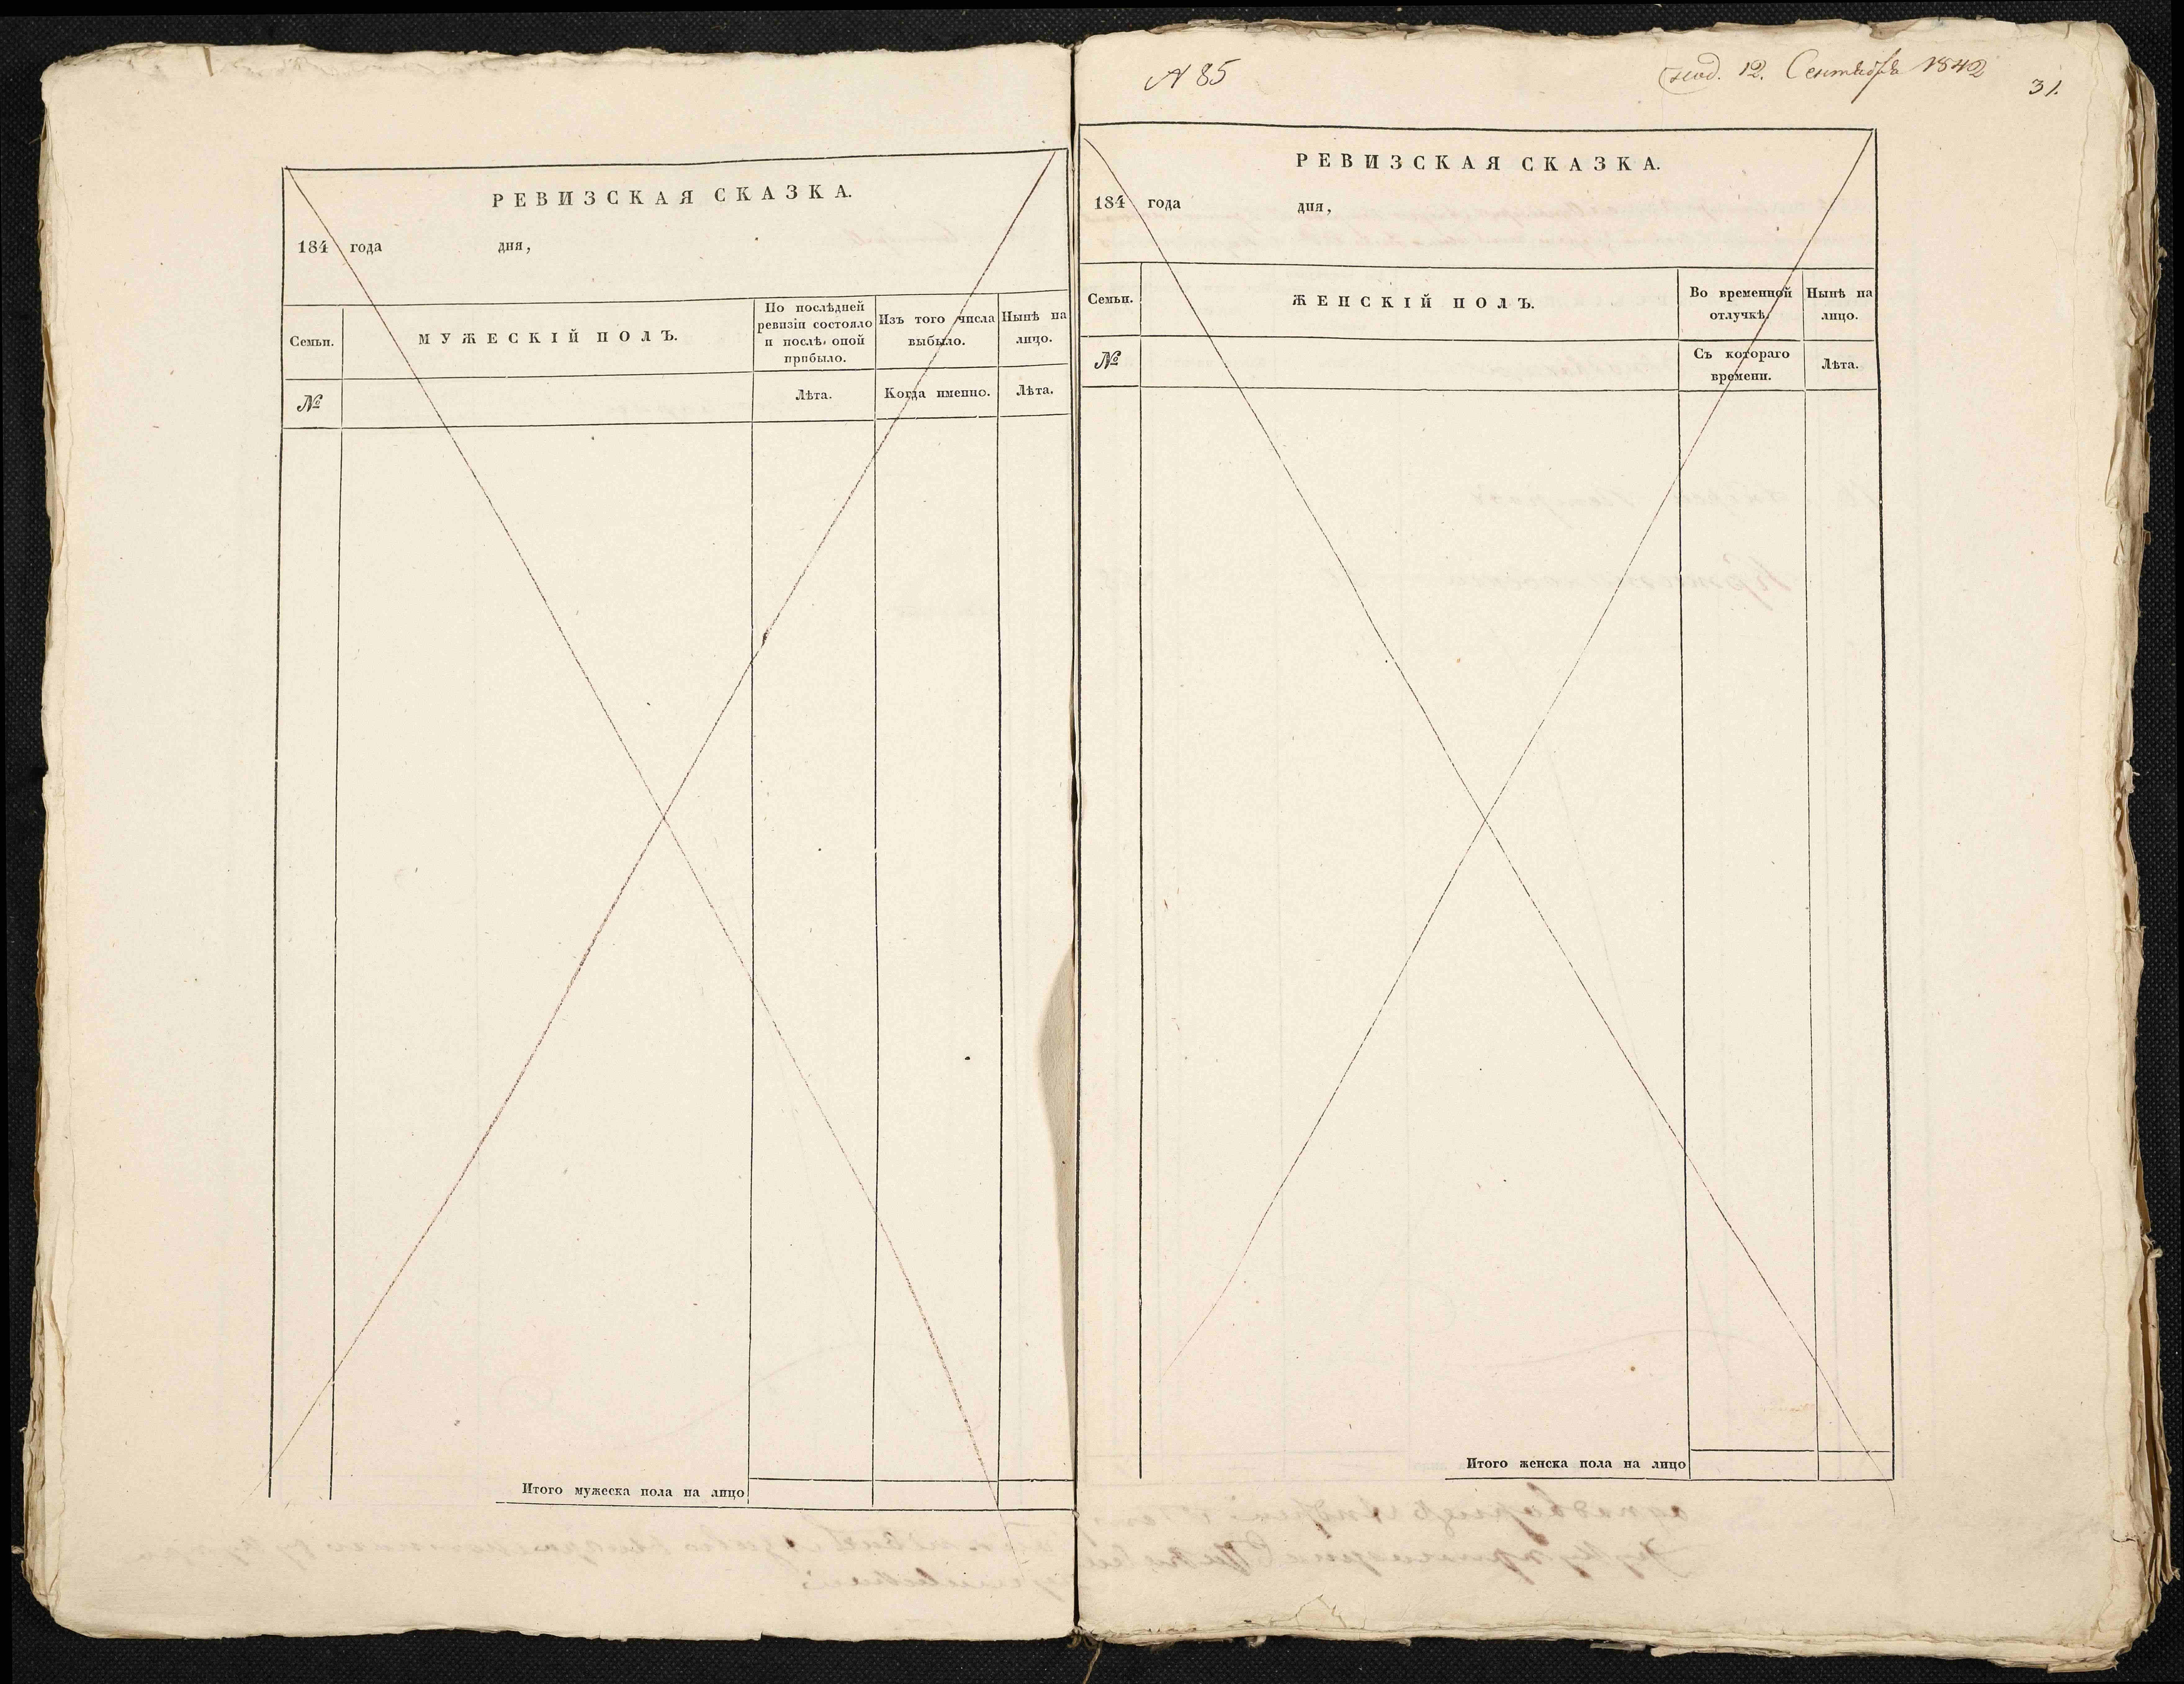 РЕВИЗСКАЯ СКАЗКА.
184 года дня,
Семьи.
МУЖЕСКІЙ ПОЛЪ.
По послѣдней
ревизіи состояло
и послѣ оной
прибыло.
Изъ того числа
выбыло.
Нынѣ на
лицо.
№
Лѣта.
Когда именно.
Лѣта.
Итого мужеска пола на лицо
№ 85
12. Сентября 1842
31.
РЕВИЗСКАЯ СКАЗКА.
184 года дня,
Семьи.
ЖЕНСКІЙ ПОЛЪ.
Во временной
отлучкѣ.
Нынѣ на
лицо.
№
Съ котораго
времени.
Лѣта.
Итого женска пола на лицо